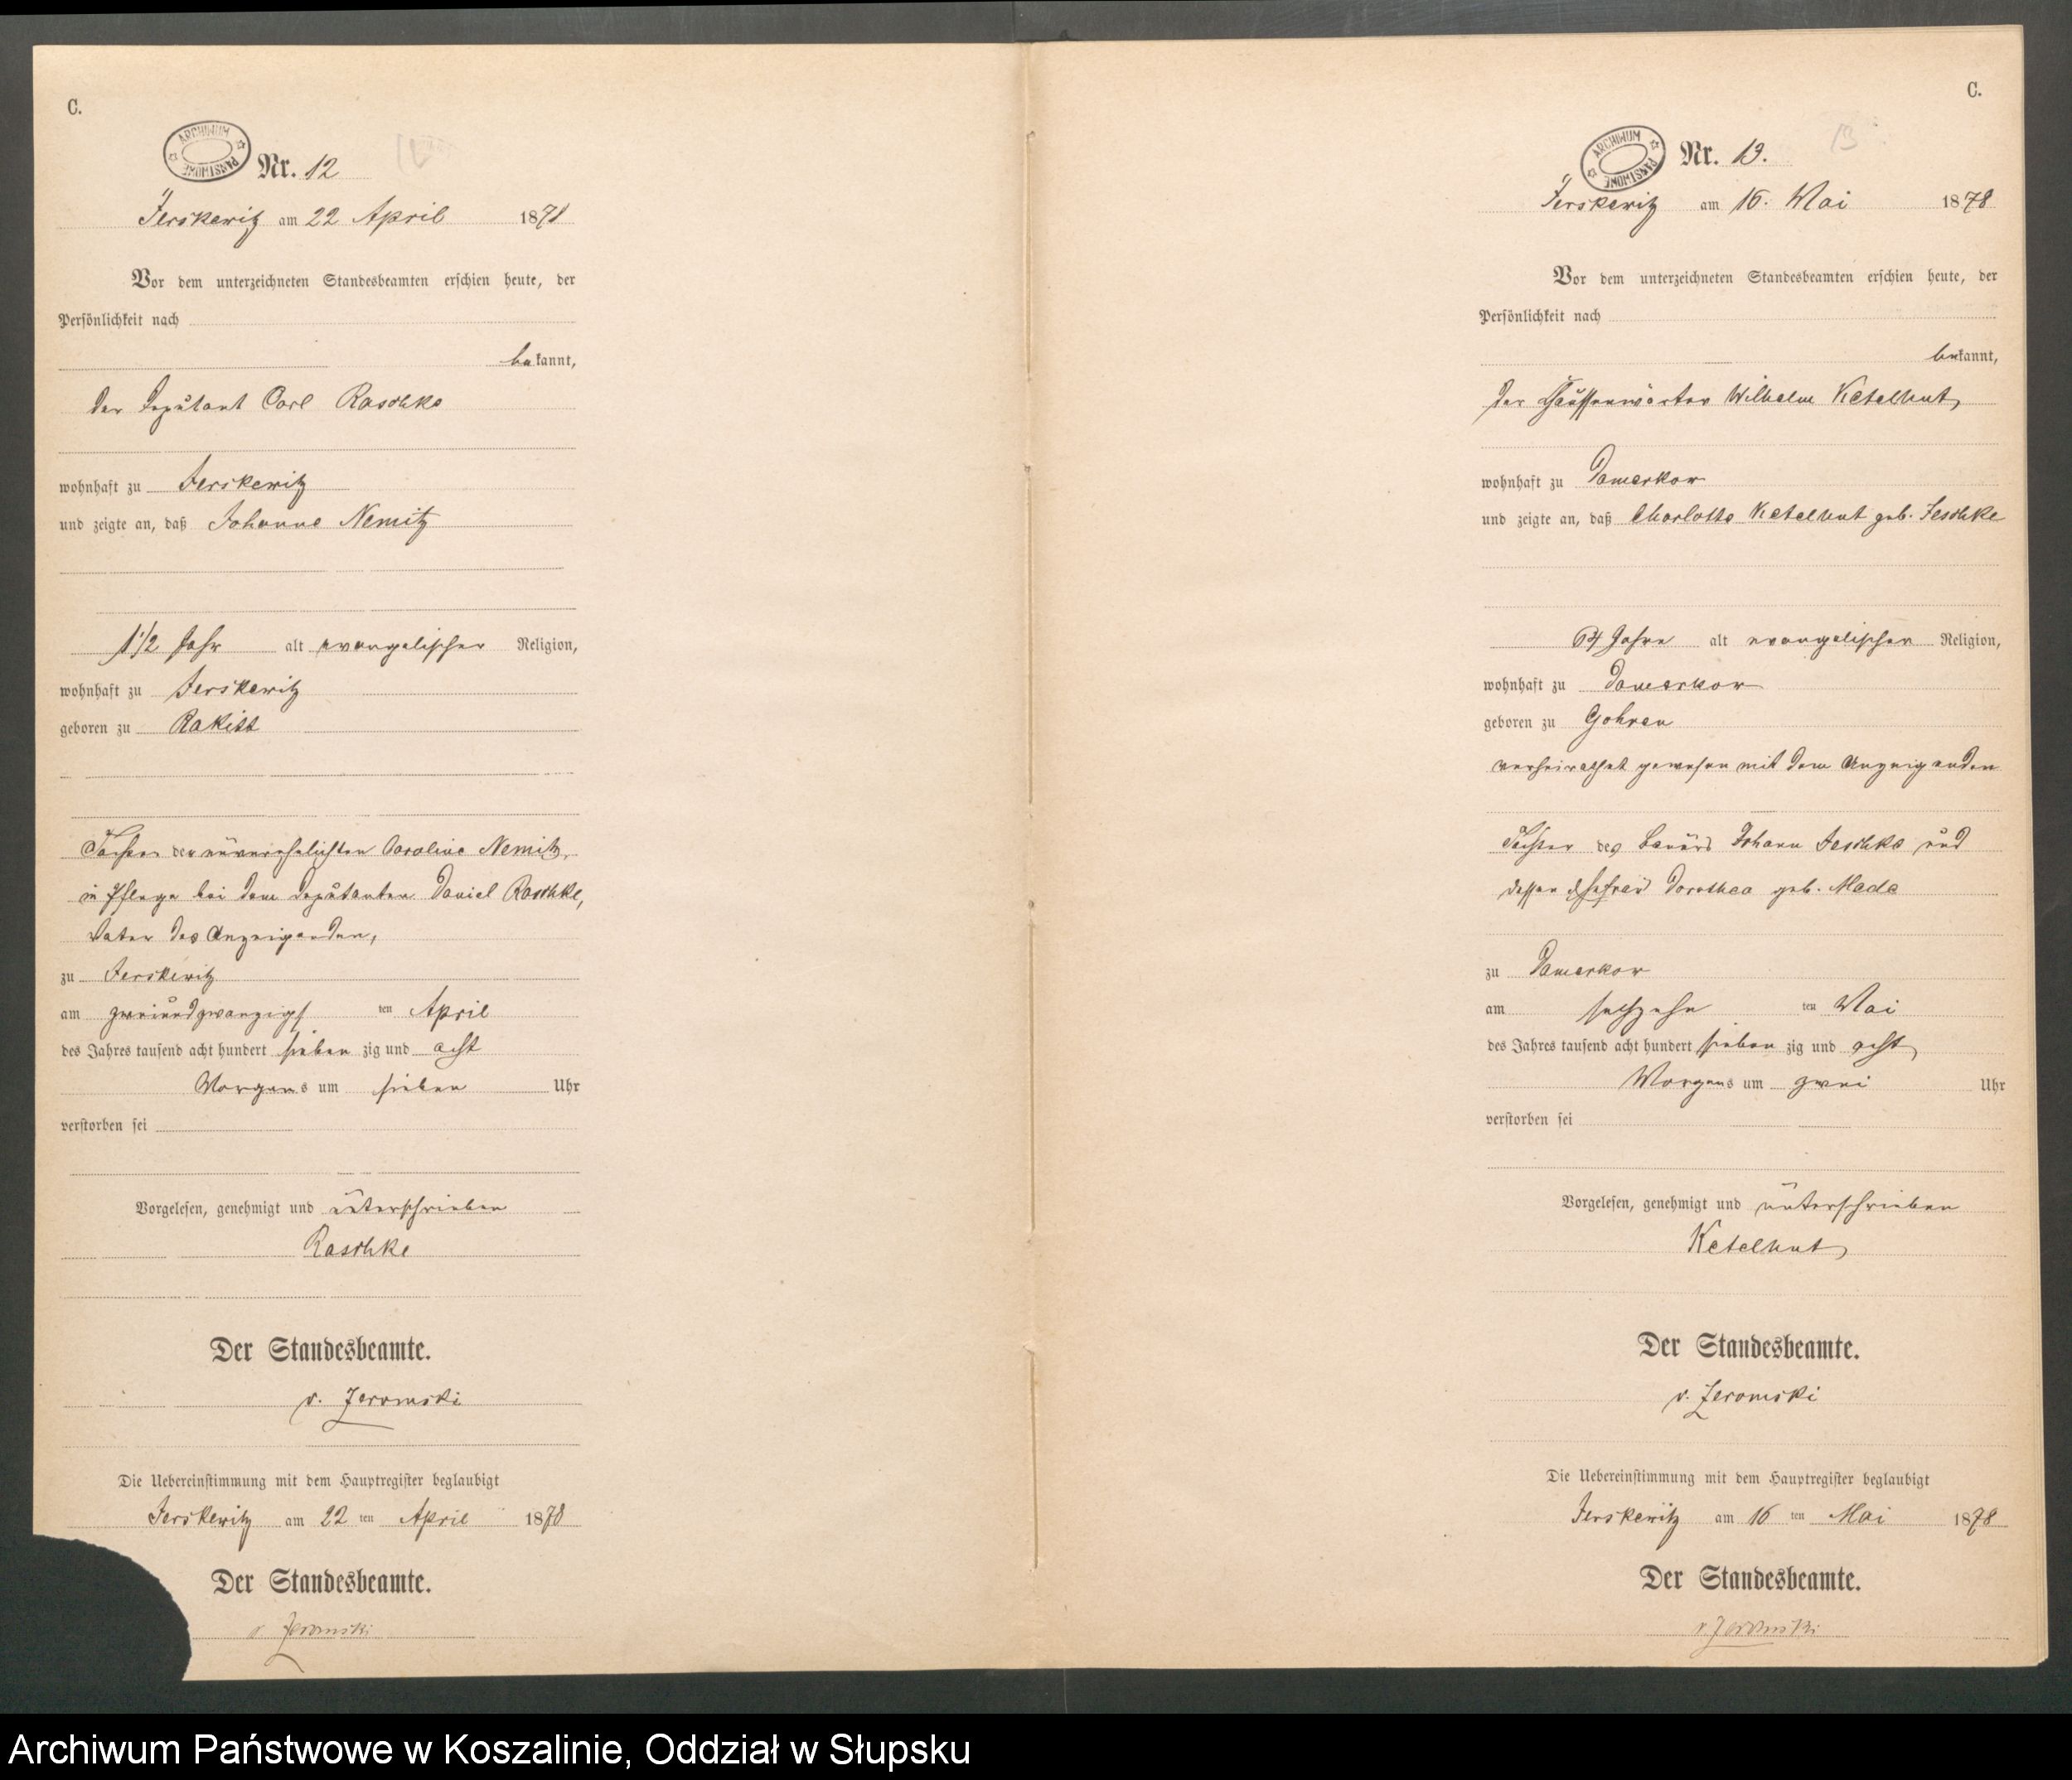 C.
ARCHIWUM PAŃSTWOWE
Nr. 12
Jerskewitz am 22 April 1878
Vor dem unterzeichneten Standesbeamten erschien heute, der
Persönlichkeit nach
bekannt,
der Deputant Carl Raschke
wohnhaft zu Jerskewitz
und zeigte an, daß Johanne Nemitz
1 1/2 Jahr alt evangelischer Religion,
wohnhaft zu Jerskewitz
geboren zu Rakitt
Tochter der unverehelichten Caroline Nemitz,
in Pflege bei dem Deputanten Daniel Raschke,
Vater des Anzeigenden,
zu Jerskewitz
am zweiundzwanzigs ten April
des Jahres tausend acht hundert sieben zig und acht
Morgens um sieben Uhr
verstorben sei
Vorgelesen, genehmigt und unterschrieben
Raschke
Der Standesbeamte.
v. Zeromski
Die Uebereinstimmung mit dem Hauptregister beglaubigt
Jerskewitz am 22 ten April 1878
Der Standesbeamte.
v. Zeromski
C.
ARCHIWUM PAŃSTWOWE
13
Nr. 13.
Jerskewitz am 16. Mai 1878
Vor dem unterzeichneten Standesbeamten erschien heute, der
Persönlichkeit nach
bekannt,
der Chausseewärter Wilhelm Ketelhut,
wohnhaft zu Damerkow
und zeigte an, daß Charlotte Ketelhut geb. Jeschke
64 Jahre alt evangelischer Religion,
wohnhaft zu Damerkow
geboren zu Gohren
verheirathet gewesen mit dem Anzeigenden
Tochter des Bauers Johann Jeschke und
dessen Ehefrau Dorothea geb. Made
zu Damerkow
am sechzehn ten Mai
des Jahres tausend acht hundert sieben zig und acht,
Morgens um zwei Uhr
verstorben sei
Vorgelesen, genehmigt und unterschrieben
Ketelhut,
Der Standesbeamte.
v. Zeromski
Die Uebereinstimmung mit dem Hauptregister beglaubigt
Jerskewitz am 16 ten Mai 1878
Der Standesbeamte.
v. Zeromski
Archiwum Państwowe w Koszalinie, Oddział w Słupsku